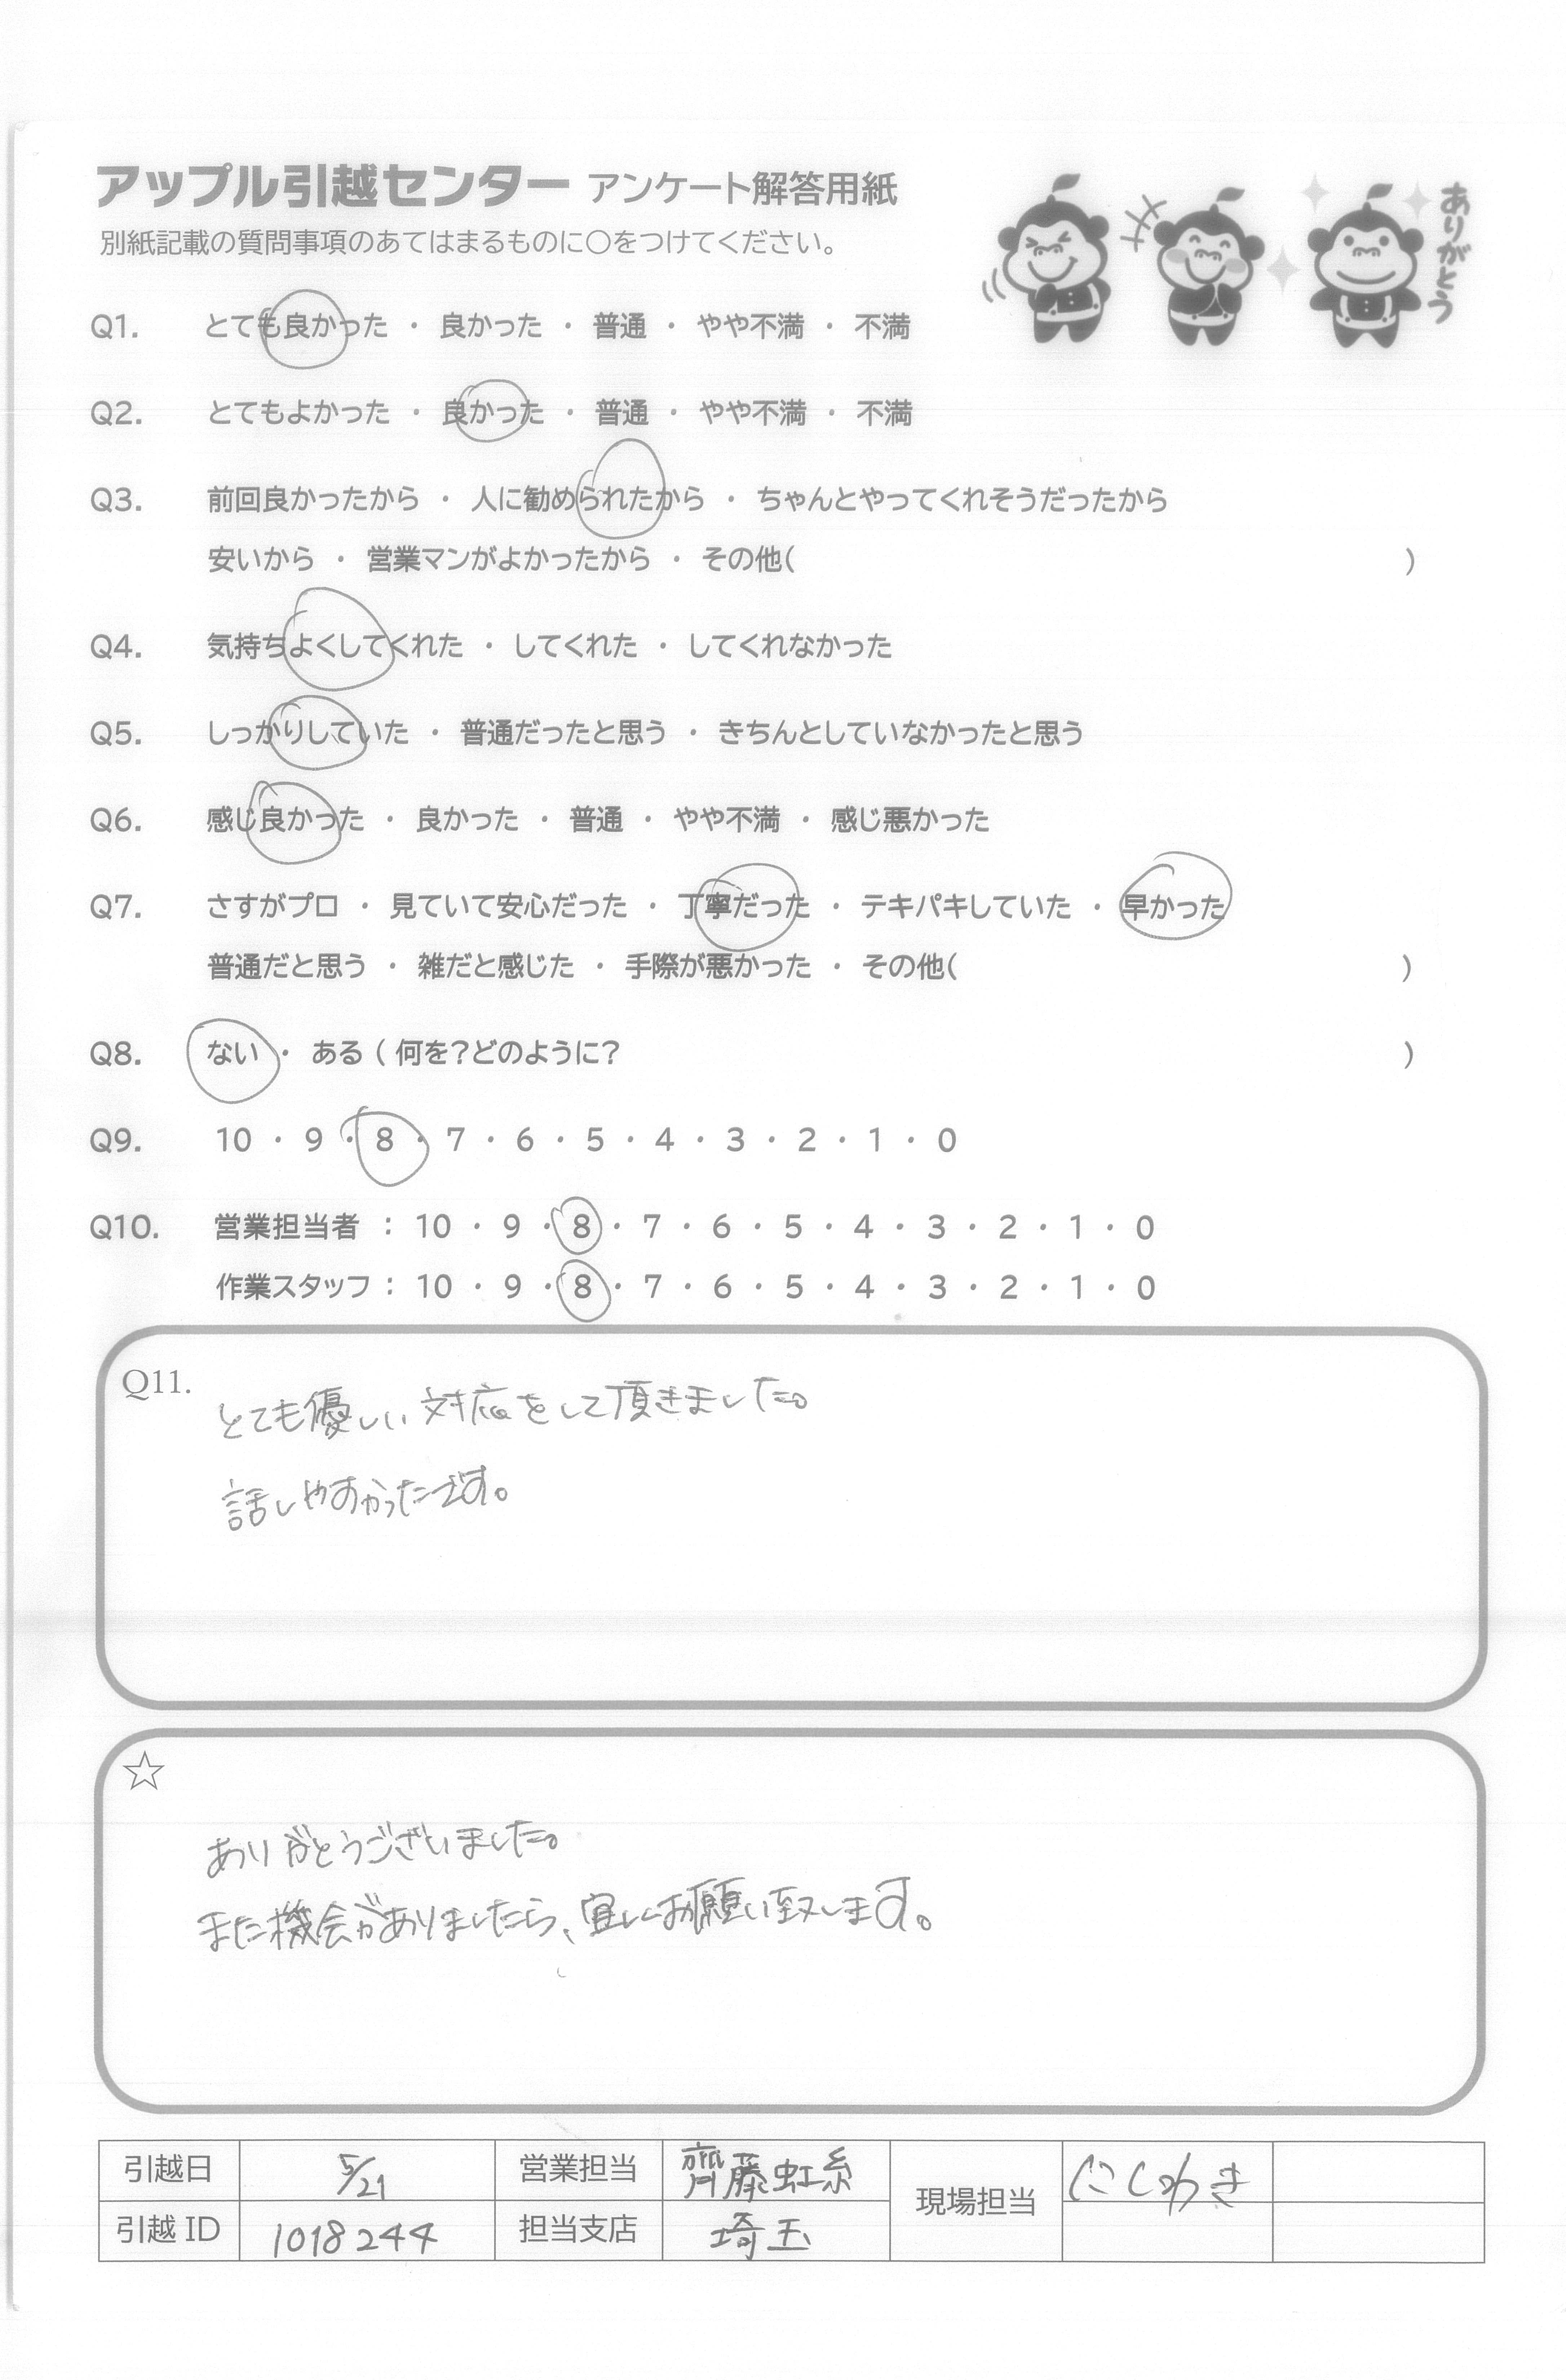 アップル引越センター アンケート解答用紙
別紙記載の質問事項のあてはまるものに〇をつけてください。
ありがとう
Q1. とても良かった ・ 良かった ・ 普通 ・ やや不満 ・ 不満
Q2. とてもよかった ・ 良かった ・ 普通 ・ やや不満 ・ 不満
Q3. 前回良かったから ・ 人に勧められたから ・ ちゃんとやってくれそうだったから
安いから ・ 営業マンがよかったから ・ その他( )
Q4. 気持ちよくしてくれた ・ してくれた ・ してくれなかった
Q5. しっかりしていた ・ 普通だったと思う ・ きちんとしていなかったと思う
Q6. 感じ良かった ・ 良かった ・ 普通 ・ やや不満 ・ 感じ悪かった
Q7. さすがプロ ・ 見ていて安心だった ・ 丁寧だった ・ テキパキしていた ・ 早かった
普通だと思う ・ 雑だと感じた ・ 手際が悪かった ・ その他( )
Q8. ない ・ ある ( 何を?どのように? )
Q9. 10 ・ 9 ・ 8 ・ 7 ・ 6 ・ 5 ・ 4 ・ 3 ・ 2 ・ 1 ・ 0
Q10. 営業担当者 : 10 ・ 9 ・ 8 ・ 7 ・ 6 ・ 5 ・ 4 ・ 3 ・ 2 ・ 1 ・ 0
作業スタッフ : 10 ・ 9 ・ 8 ・ 7 ・ 6 ・ 5 ・ 4 ・ 3 ・ 2 ・ 1 ・ 0
Q11.
とても優しい対応をして頂きました。
話しやすかったです。
☆
ありがとうございました。
また機会がありましたら、宜しくお願い致します。
引越日 5/21 営業担当 齊藤虹糸 現場担当 にしわき
引越 ID 1018244 担当支店 埼玉